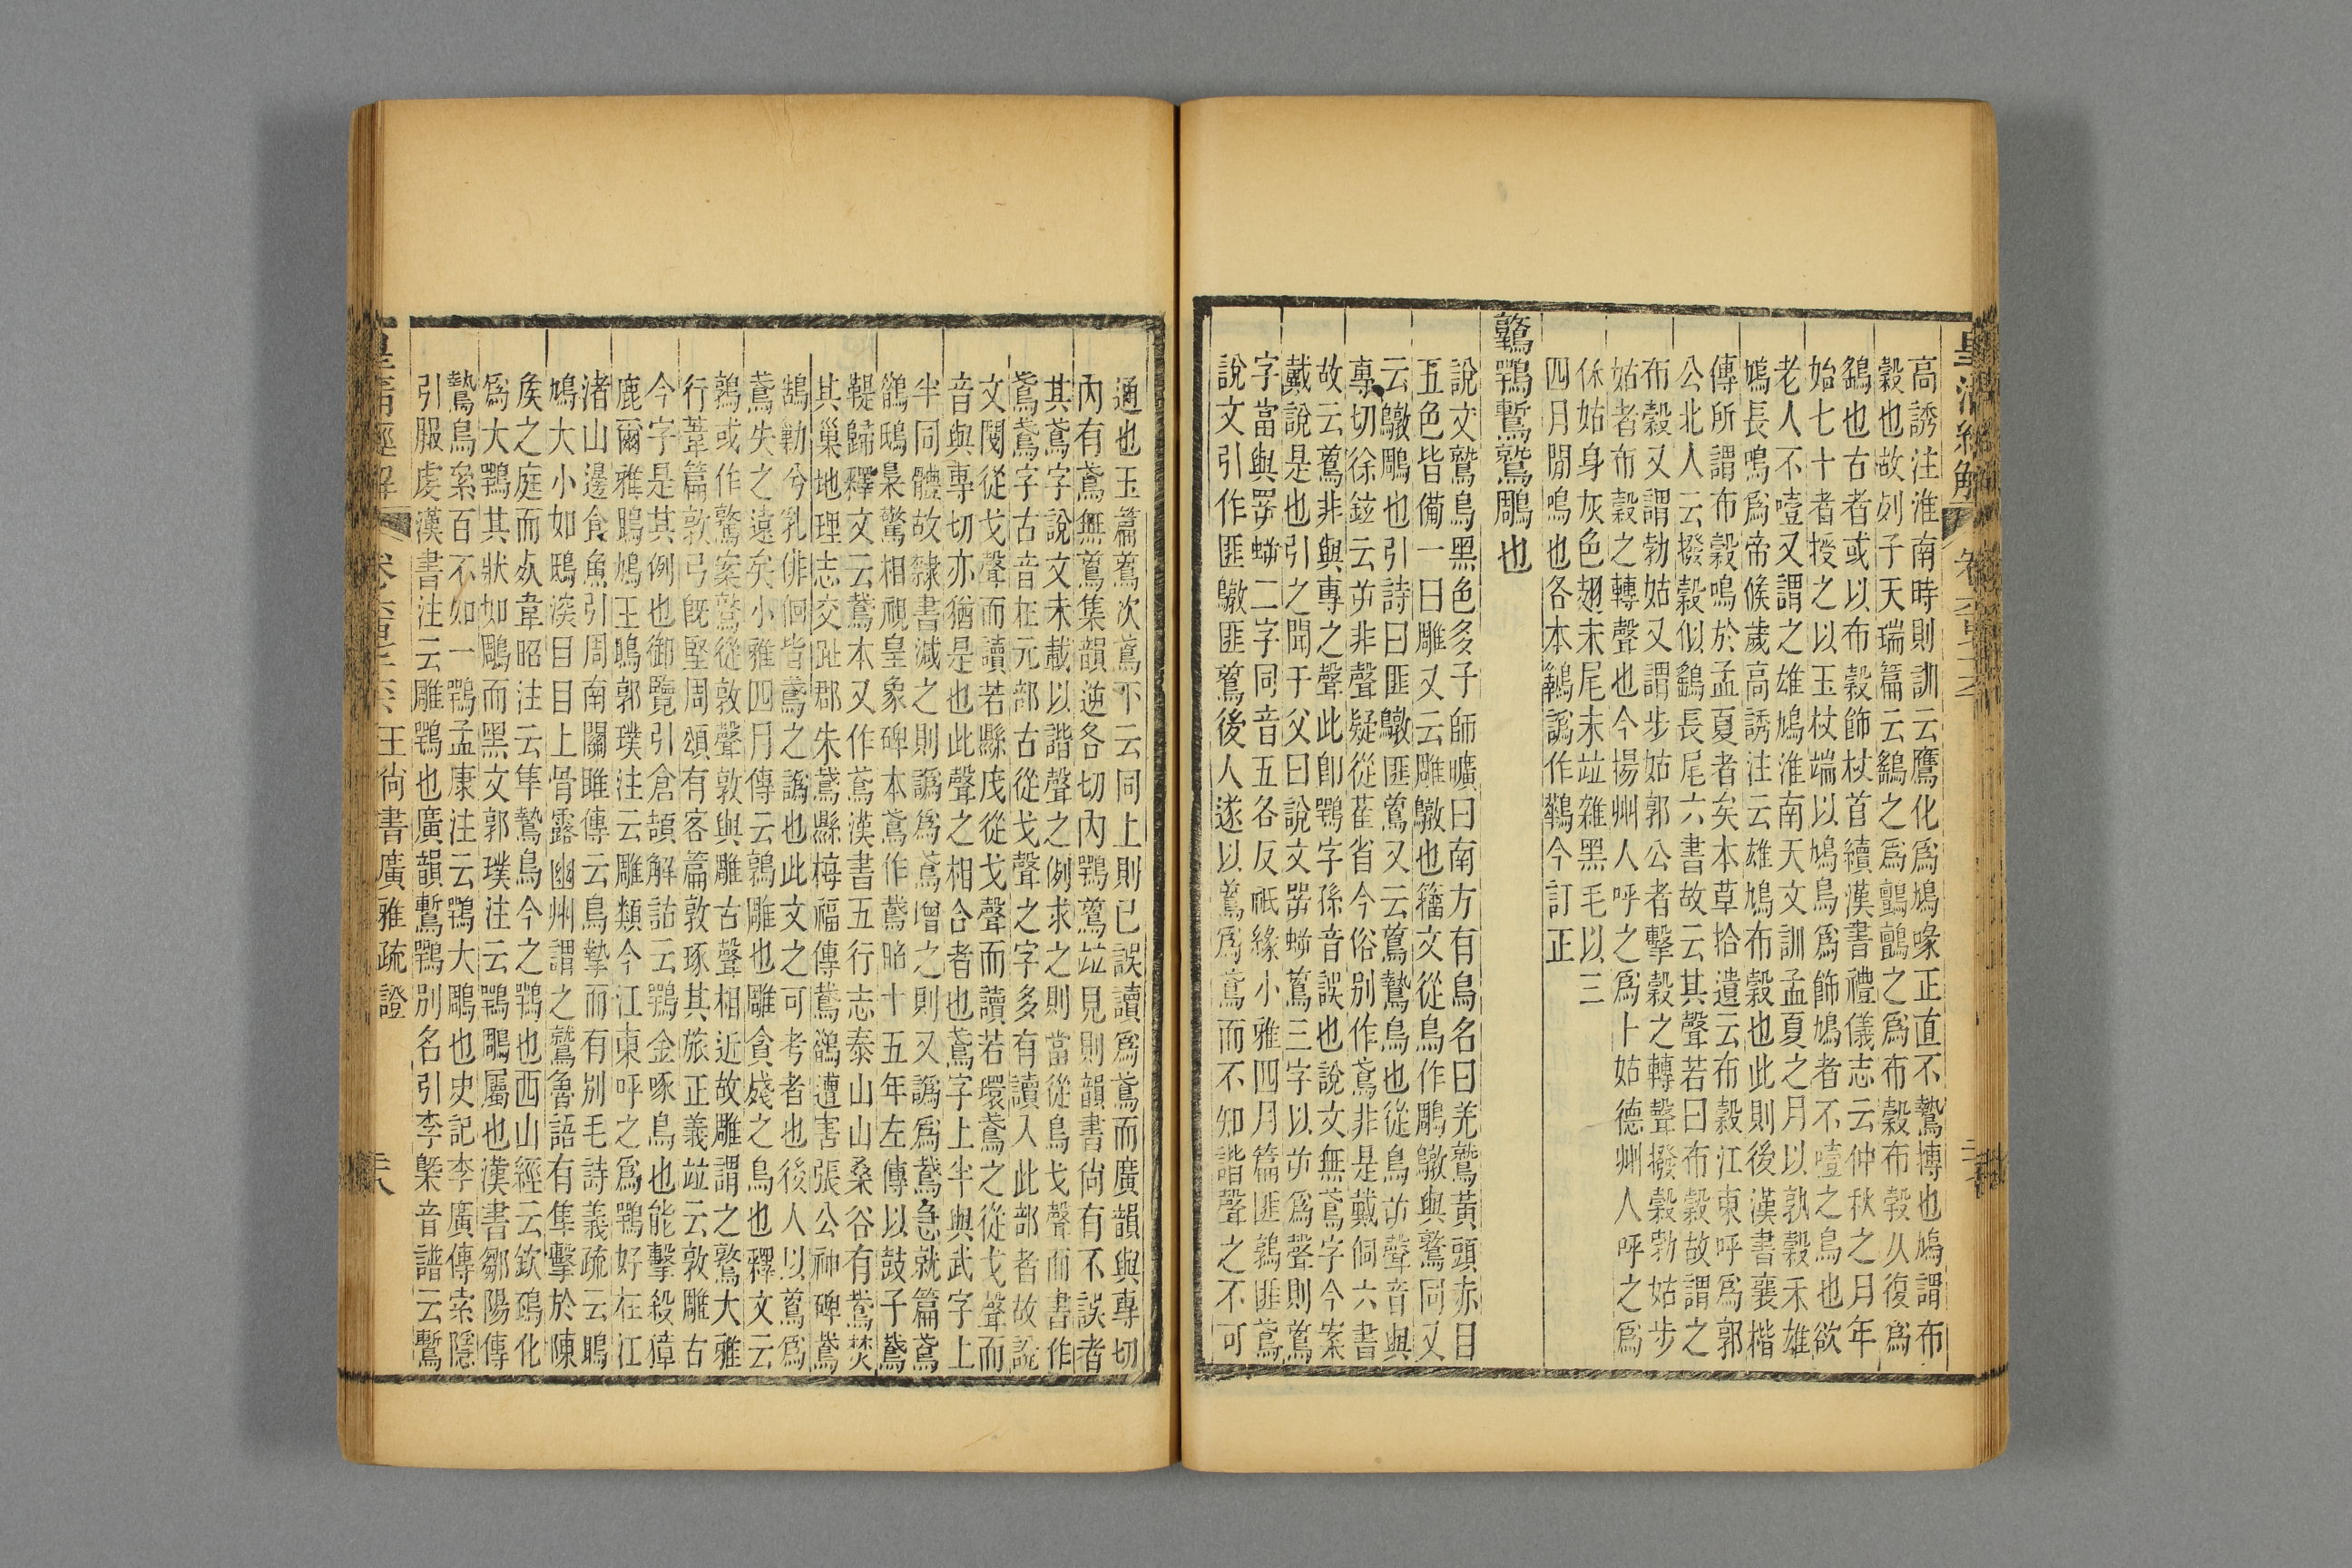 皇清經解
高誘注淮南時則訓云鷹化爲鳩喙正直不鷙搏也鳩謂布
穀也故列子天瑞篇云鷂之爲鸇鸇之爲布穀布穀久復爲
鷂也古者或以布穀飾杖首續漢書禮儀志云仲秋之月年
始七十者授之以玉杖端以鳩鳥爲飾鳩者不噎之鳥也欲
老人不噎又謂之雄鳩淮南天文訓孟夏之月以孰穀禾雄
鳩長鳴爲帝候歲高誘注云雄鳩布穀也此則後漢書襄楷
傳所謂布穀鳴於孟夏者矣本草拾遺云布穀江東呼爲郭
公北人云撥穀似鷂長尾六書故云其聲若曰布穀故謂之
布穀又謂勃姑又謂步姑郭公者擊穀之轉聲撥穀勃姑步
姑者布穀之轉聲也今揚州人呼之爲卜姑德州人呼之爲
保姑身灰色翅末尾末竝雜黑毛以三
四月閒鳴也各本鶷譌作鶷今訂正
鷻鶚鷲鵰也
說文鷲鳥黑色多子師曠曰南方有鳥名曰羌鷲黃頭赤目
五色皆備一曰雕又云雕䳄也籀文從鳥作鵰䳄與鷻同又
云䳄雕也引詩曰匪䳄匪䳒又云䳒鷙鳥也從鳥屰聲音與
專切徐鉉云屰非聲疑從雈省今俗别作鳶非是戴侗六書
故云䳒非與專之聲此卽鶚字孫音誤也說文無鳶字今案
戴說是也引之聞于父曰說文㖾䗁䳒三字以屰爲聲則䳒
字當與㖾䗁二字同音五各反祇緣小雅四月篇匪鶉匪鳶
說文引作匪䳄匪䳒後人遂以䳒爲鳶而不知諧聲之不可
通也玉篇䳒次鳶下云同上則已誤讀爲鳶而廣韻與專切
內有鳶無䳒集韻逆各切內鶚䳒竝見則韻書尙有不誤者
其鳶字說文未載以諧聲之例求之則當從鳥戈聲而書作
鳶鳶字古音在元部古從戈聲之字多有讀入此部者故說
文閺從戈聲而讀若縣茂從戈聲而讀若環鳶之從戈聲而
音與專切亦猶是也此聲之相合者也鳶字上半與武字上
半同體故隸書減之則譌爲鳶增之則又譌爲鵞急就篇鳶
鵒鴟梟驚相視皇象碑本鳶作鵞昭十五年左傳以鼓子鳶
鞮歸釋文云鳶本又作鳶漢書五行志泰山山桑谷有鳶焚
其巢地理志交趾郡朱鳶縣梅福傳鳶鵲遭害張公神碑鳶
鵠勦兮乳俳佪皆鳶之譌也此文之可考者也後人以䳒爲
鳶失之遠矣小雅四月傳云鶉雕也雕貪殘之鳥也釋文云
鶉或作鷻案鷻從敦聲敦與雕古聲相近故雕謂之鷻大雅
行葦篇敦弓旣堅周頌有客篇敦琢其旅正義竝云敦雕古
今字是其例也御覽引倉頡解詁云鶚金喙鳥也能擊殺獐
鹿爾雅鵙鳩王鵙郭璞注云雕類今江東呼之爲鶚好在江
渚山邊食魚引周南關雎傳云鳥摯而有别毛詩義疏云鵙
鳩大小如鴟深目目上骨露幽州謂之鷲魯語有隼擊於陳
侯之庭而死韋昭注云隼鷙鳥今之鶚也西山經云欽䲹化
爲大鶚其狀如鵰而黑文郭璞注云鶚鵰屬也漢書鄒陽傳
鷙鳥絫百不如一鶚孟康注云鶚大鵰也史記李廣傳索隱
引服虔漢書注云雕鶚也廣韻鷲鶚别名引李㮣音譜云鷲
皇清經解
王尙書廣雅疏證